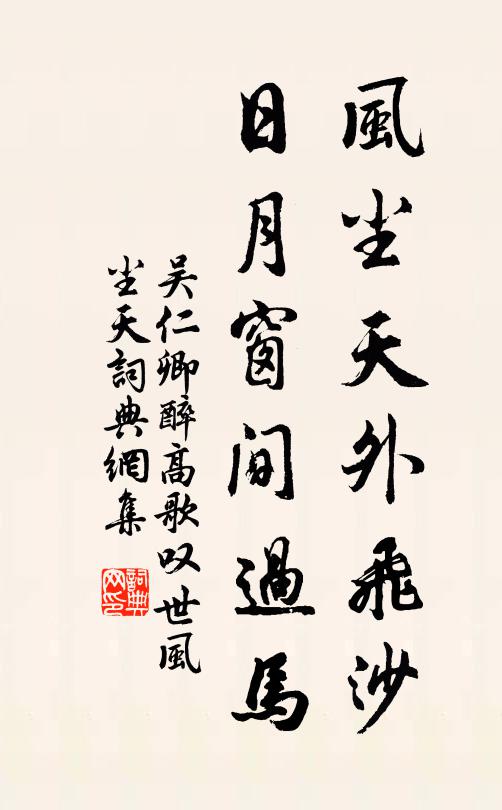 風尘天外飛沙
日月窗間過馬
吴仁卿醉高歌叹世風
尘天詞典網集
詞典网印